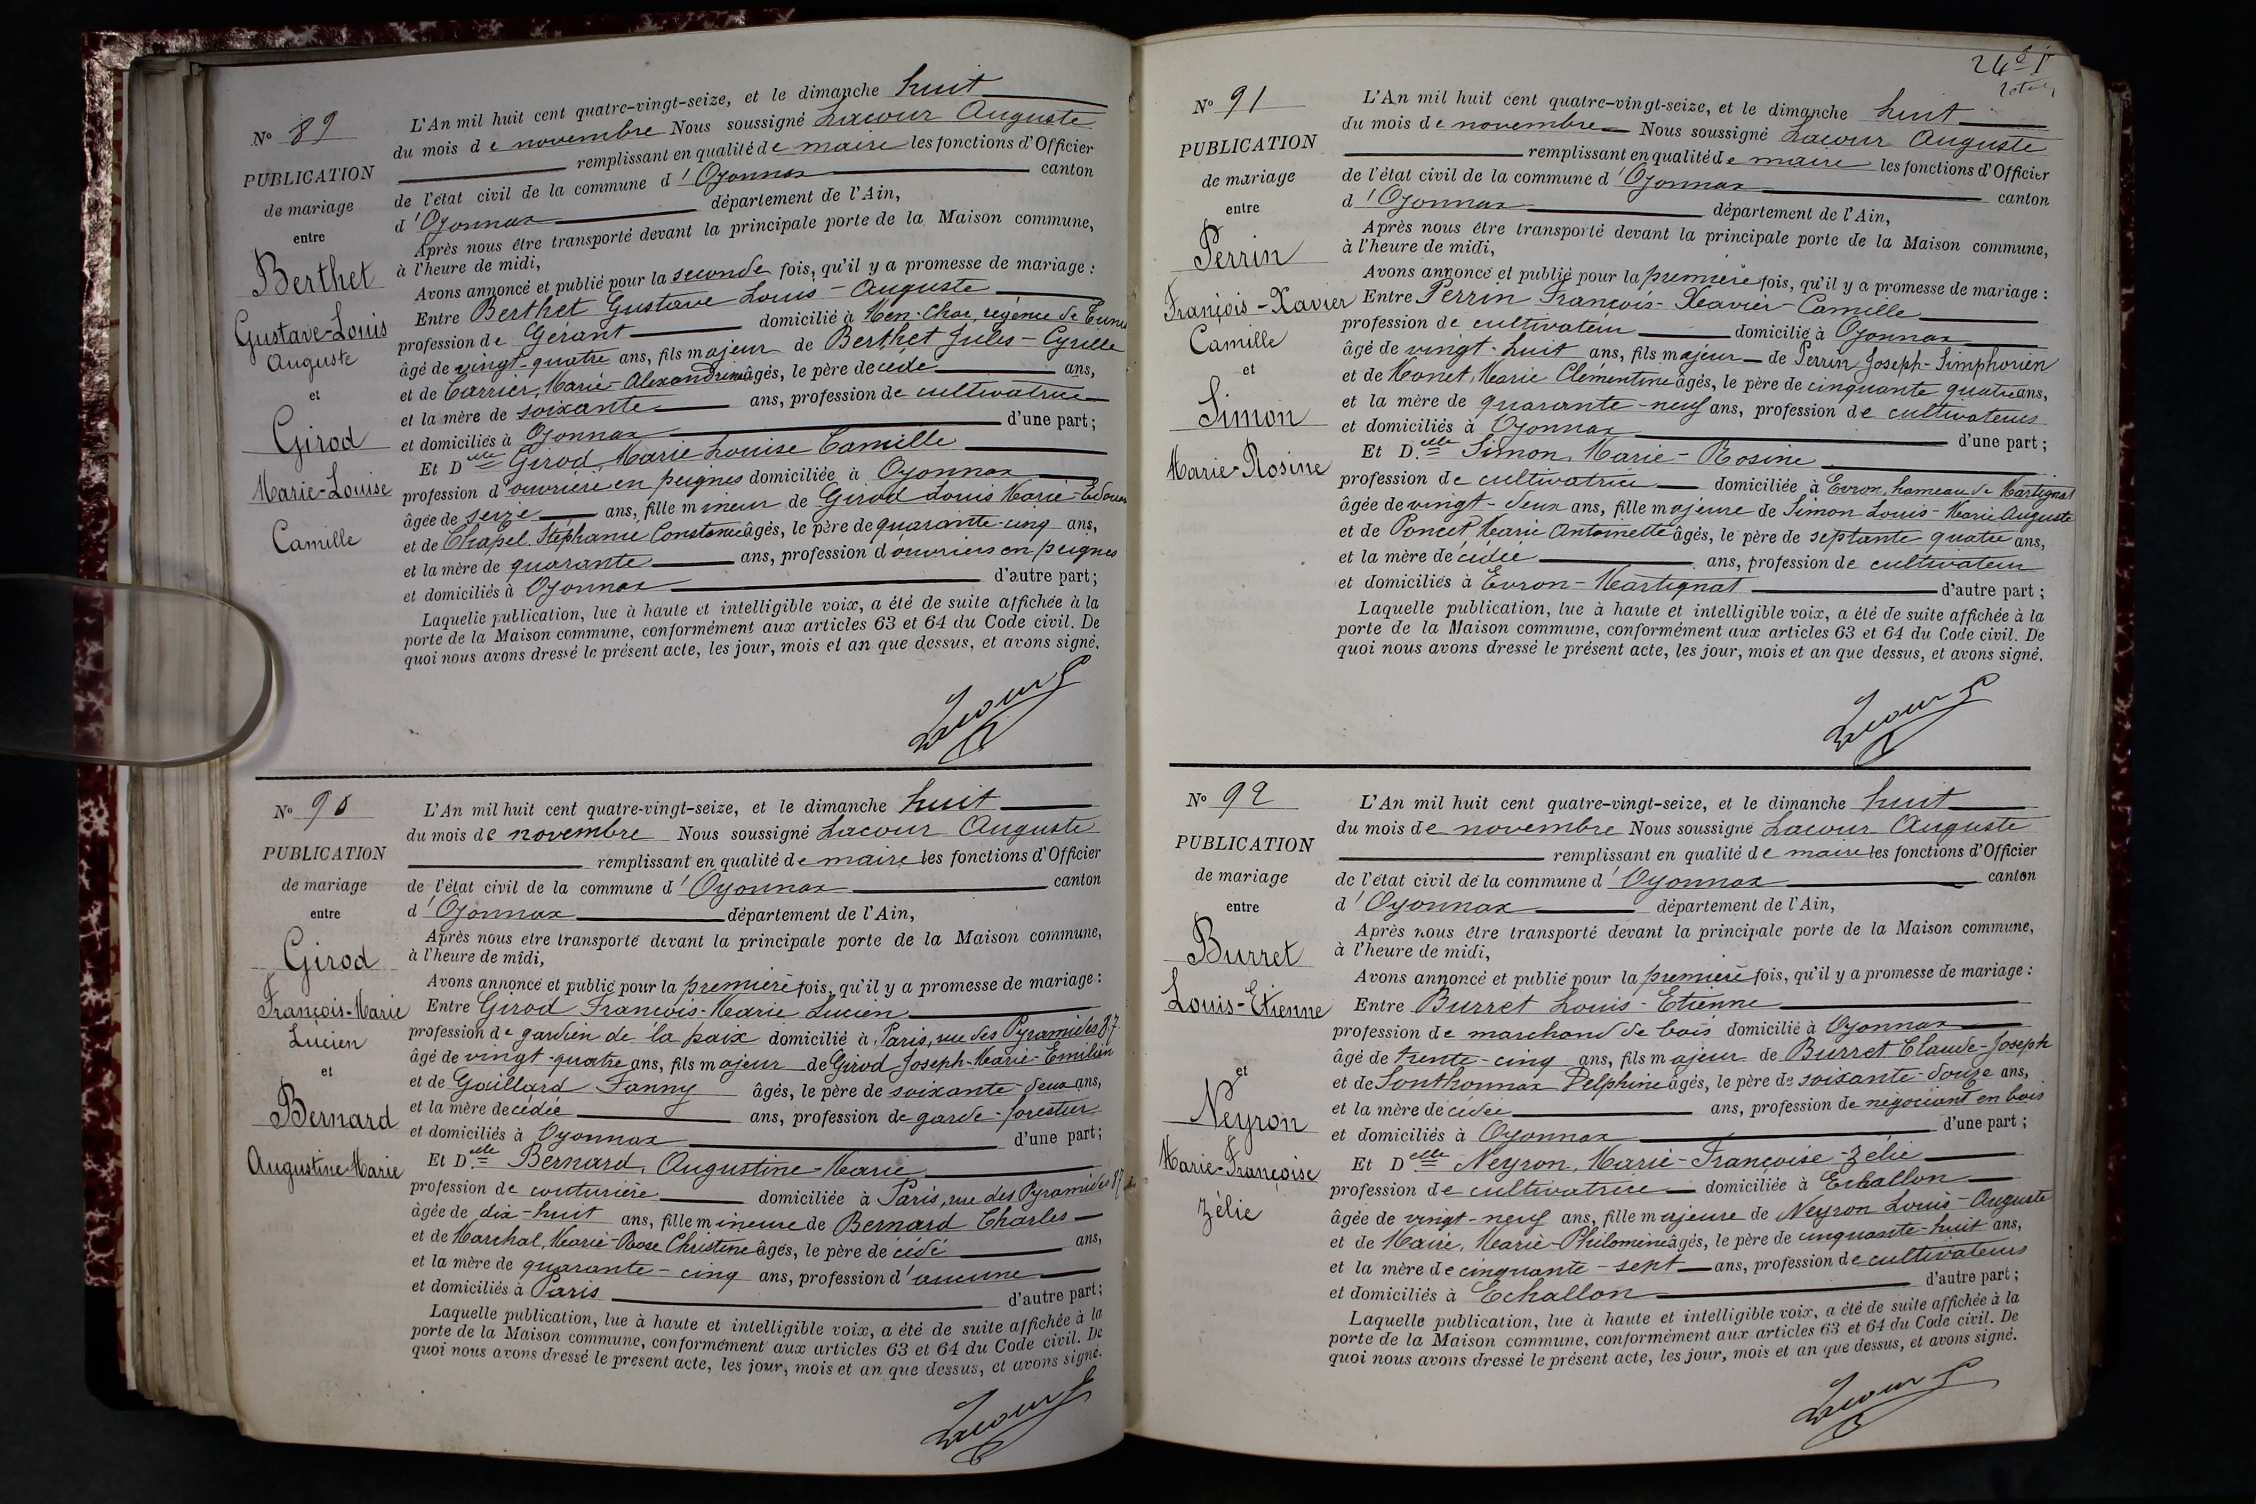 N° 89
PUBLICATION
de mariage
entre
Berthet
Gustave-Louis
Auguste
et
Girod
Marie-Louise
Camille
L'An mil huit cent quatre-vingt-seize, et le dimanche huit
du mois de novembre Nous soussigné Lacour Auguste
remplissant en qualité de maire les fonctions d'Officier
de l'état civil de la commune d'Oyonnax canton
d'Oyonnax département de l'Ain,
Après nous être transporté devant la principale porte de la Maison commune,
à l'heure de midi,
Avons annoncé et publié pour la seconde fois, qu'il y a promesse de mariage :
Entre Berthet Gustave Louis-Auguste
profession de Gérant domicilié à régence de
âgé de vingt-quatre ans, fils majeur de Berthet Jules-Cyrille
et de Carrier, Marie-Alexandrine âgés, le père décédé ans,
et la mère de soixante ans, profession de cultivatrice
et domiciliés à Oyonnax d'une part ;
Et Delle Girod, Marie Louise Camille
profession d'ouvrière en peignes domiciliée à Oyonnax
âgée de seize ans, fille mineur de Girod Louis Marie-Edouard
et de Chapel Stéphanie Constance âgés, le père de quarante-cinq ans,
et la mère de quarante ans, profession d'ouvriers en peignes
et domiciliés à Oyonnax d'autre part ;
Laquelle publication, lue à haute et intelligible voix, a été de suite affichée à la
porte de la Maison commune, conformément aux articles 63 et 64 du Code civil. De
quoi nous avons dressé le présent acte, les jour, mois et an que dessus, et avons signé.
Lacour
N° 90
PUBLICATION
de mariage
entre
Girod
François-Marie
Lucien
et
Bernard
Augustine-Marie
L'An mil huit cent quatre-vingt-seize, et le dimanche huit
du mois de novembre Nous soussigné Lacour Auguste
remplissant en qualité de maire les fonctions d'Officier
de l'état civil de la commune d'Oyonnax canton
d'Oyonnax département de l'Ain,
Après nous être transporté devant la principale porte de la Maison commune,
à l'heure de midi,
Avons annoncé et publié pour la première fois, qu'il y a promesse de mariage :
Entre Girod François-Marie Lucien
profession de gardien de la paix domicilié à Paris, rue des Pyramides 87
âgé de vingt-quatre ans, fils majeur de Girod Joseph-Marie-Emilien
et de Gaillard Fanny âgés, le père de soixante-deux ans,
et la mère décédée ans, profession de garde-forestier
et domiciliés à Oyonnax d'une part ;
Et Delle Bernard, Augustine-Marie
profession de couturière domiciliée à Paris, rue des Pyramides 87
âgée de dix-huit ans, fille mineure de Bernard Charles
et de Marchal, Marie-Rose Christine âgés, le père décédé ans,
et la mère de quarante-cinq ans, profession d'aucune
et domiciliés à Paris d'autre part ;
Laquelle publication, lue à haute et intelligible voix, a été de suite affichée à la
porte de la Maison commune, conformément aux articles 63 et 64 du Code civil. De
quoi nous avons dressé le présent acte, les jour, mois et an que dessus, et avons signé.
Lacour
N° 91
PUBLICATION
de mariage
entre
Perrin
François-Xavier
Camille
et
Simon
Marie-Rosine
L'An mil huit cent quatre-vingt-seize, et le dimanche huit
du mois de novembre Nous soussigné Lacour Auguste
remplissant en qualité de maire les fonctions d'Officier
de l'état civil de la commune d'Oyonnax canton
d'Oyonnax département de l'Ain,
Après nous être transporté devant la principale porte de la Maison commune,
à l'heure de midi,
Avons annoncé et publié pour la première fois, qu'il y a promesse de mariage :
Entre Perrin François-Xavier-Camille
profession de cultivateur domicilié à Oyonnax
âgé de vingt-huit ans, fils majeur de Perrin Joseph-Simphorien
et de Monet, Marie Clémentine âgés, le père de cinquante quatre ans,
et la mère de quarante-neuf ans, profession de cultivateurs
et domiciliés à Oyonnax d'une part ;
Et Delle Simon, Marie-Rosine
profession de cultivatrice domiciliée à Evron, hameau de Martignat
âgée de vingt-deux ans, fille majeure de Simon Louis-Marie Auguste
et de Poncet Marie Antoinette âgés, le père de septante quatre ans,
et la mère décédée ans, profession de cultivateur
et domiciliés à Evron-Martignat d'autre part ;
Laquelle publication, lue à haute et intelligible voix, a été de suite affichée à la
porte de la Maison commune, conformément aux articles 63 et 64 du Code civil. De
quoi nous avons dressé le présent acte, les jour, mois et an que dessus, et avons signé.
Lacour
N° 92
PUBLICATION
de mariage
entre
Burret
Louis-Etienne
et
Neyron
Marie-Françoise
Zélie
L'An mil huit cent quatre-vingt-seize, et le dimanche huit
du mois de novembre Nous soussigné Lacour Auguste
remplissant en qualité de maire les fonctions d'Officier
de l'état civil de la commune d'Oyonnax canton
d'Oyonnax département de l'Ain,
Après nous être transporté devant la principale porte de la Maison commune,
à l'heure de midi,
Avons annoncé et publié pour la première fois, qu'il y a promesse de mariage :
Entre Burret Louis-Etienne
profession de marchand de bois domicilié à Oyonnax
âgé de trente-cinq ans, fils majeur de Burret Claude-Joseph
et de Sonthonnax Delphine âgés, le père de soixante-douze ans,
et la mère décédée ans, profession de négociant en bois
et domiciliés à Oyonnax d'une part ;
Et Delle Neyron, Marie-Françoise-Zélie
profession de cultivatrice domiciliée à Echallon
âgée de vingt-neuf ans, fille majeure de Neyron Louis-Auguste
et de Maire, Marie-Philomène âgés, le père de cinquante-huit ans,
et la mère de cinquante-sept ans, profession de cultivateurs
et domiciliés à Echallon d'autre part ;
Laquelle publication, lue à haute et intelligible voix, a été de suite affichée à la
porte de la Maison commune, conformément aux articles 63 et 64 du Code civil. De
quoi nous avons dressé le présent acte, les jour, mois et an que dessus, et avons signé.
Lacour